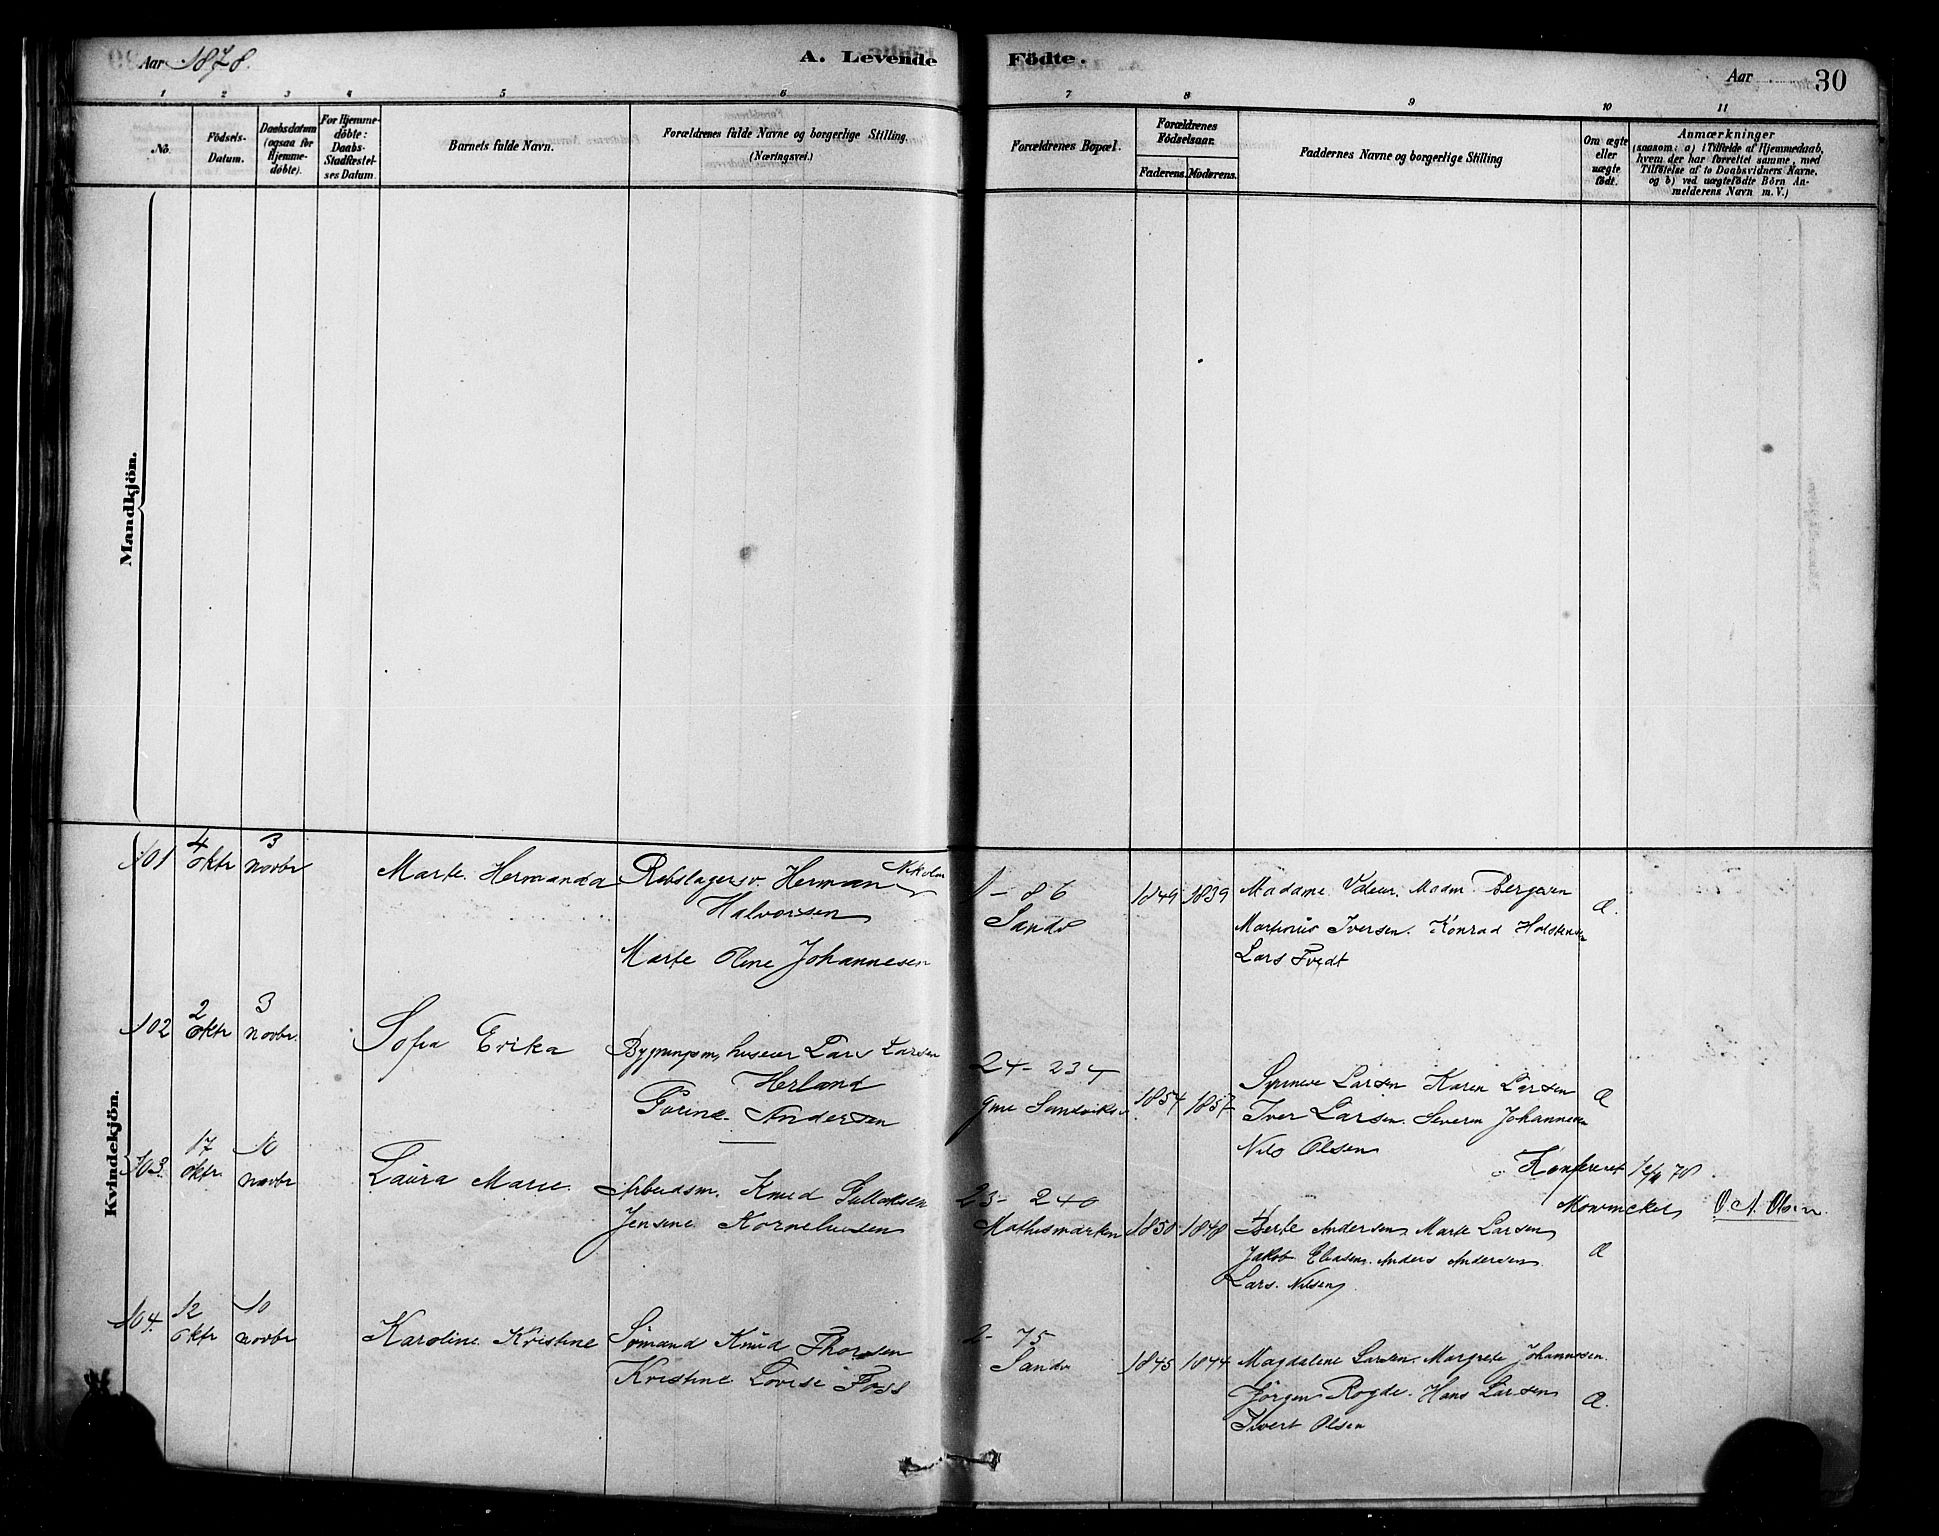 Aar 1878.
A. Levende Födte.
Aar 30
1 2 3 4 5 6 7 8 9 10 11
No.
Födsels-
Datum.
Daabsdatum
(ogsaa for
Hjemme-
döbte).
For Hjemme-
döbte:
Daabs-
Stadfæstel-
ses Datum.
Barnets fulde Navn.
Forældrenes fulde Navne og borgerlige Stilling.
(Næringsvei.)
Forældrenes Bopæl.
Forældrenes
Födselsaar.
Faderens. Moderens.
Faddernes Navne og borgerlige Stilling
Om ægte
eller
uægte
födt.
Anmærkninger
(saasom: a) i Tilfælde af Hjemmedaab,
hvem der har forrettet samme, med
Tilföielse af to Daabsvidners Navne,
og b) ved uægtefödte Börn An-
melderens Navn m. V.)
Mandkjön.
Kvindekjön.
101
4
oktr
3
novbr
Marte Hermanda
Rebslagersv. Herman
Halvorsen
Marte Oline Johannesen
1-86
Sandv
1849 1839
Madame Madm. Bergesen
Martinus Iversen. Konrad Holstensen
Lars Tvedt
Æ.
102
2
oktr
3
novbr.
Sofia Erika
Lars Larsen
Herland
Gurine Andersen
24-234
1854 1857
Larsen Karen Larsen
Iver Larsen. Severin Johannesen
Nils Olsen
Æ
103
17
oktr
10
novbr
Laura Marie
Arbeidsm. Knud Gullaksen
Jensine Korneliussen
23-240
Mathismarken
1850 1848
Konfereret
Mowinckel O. A. Olsen.
Berte Andersen, Marte Larsen
Jakob Eliasen. Anders Andersen
Lars Nilsen
Æ
104.
12
oktr
10
novbr
Karoline Kristine
Sømand Knud Thorsen
Kristine Lovise Foss
2-75
Sandv
1845 1844
Magdalene Larsen. Margrete Johannesen.
Jörgen Rogde. Hans Larsen
Sivert Olsen
Æ.